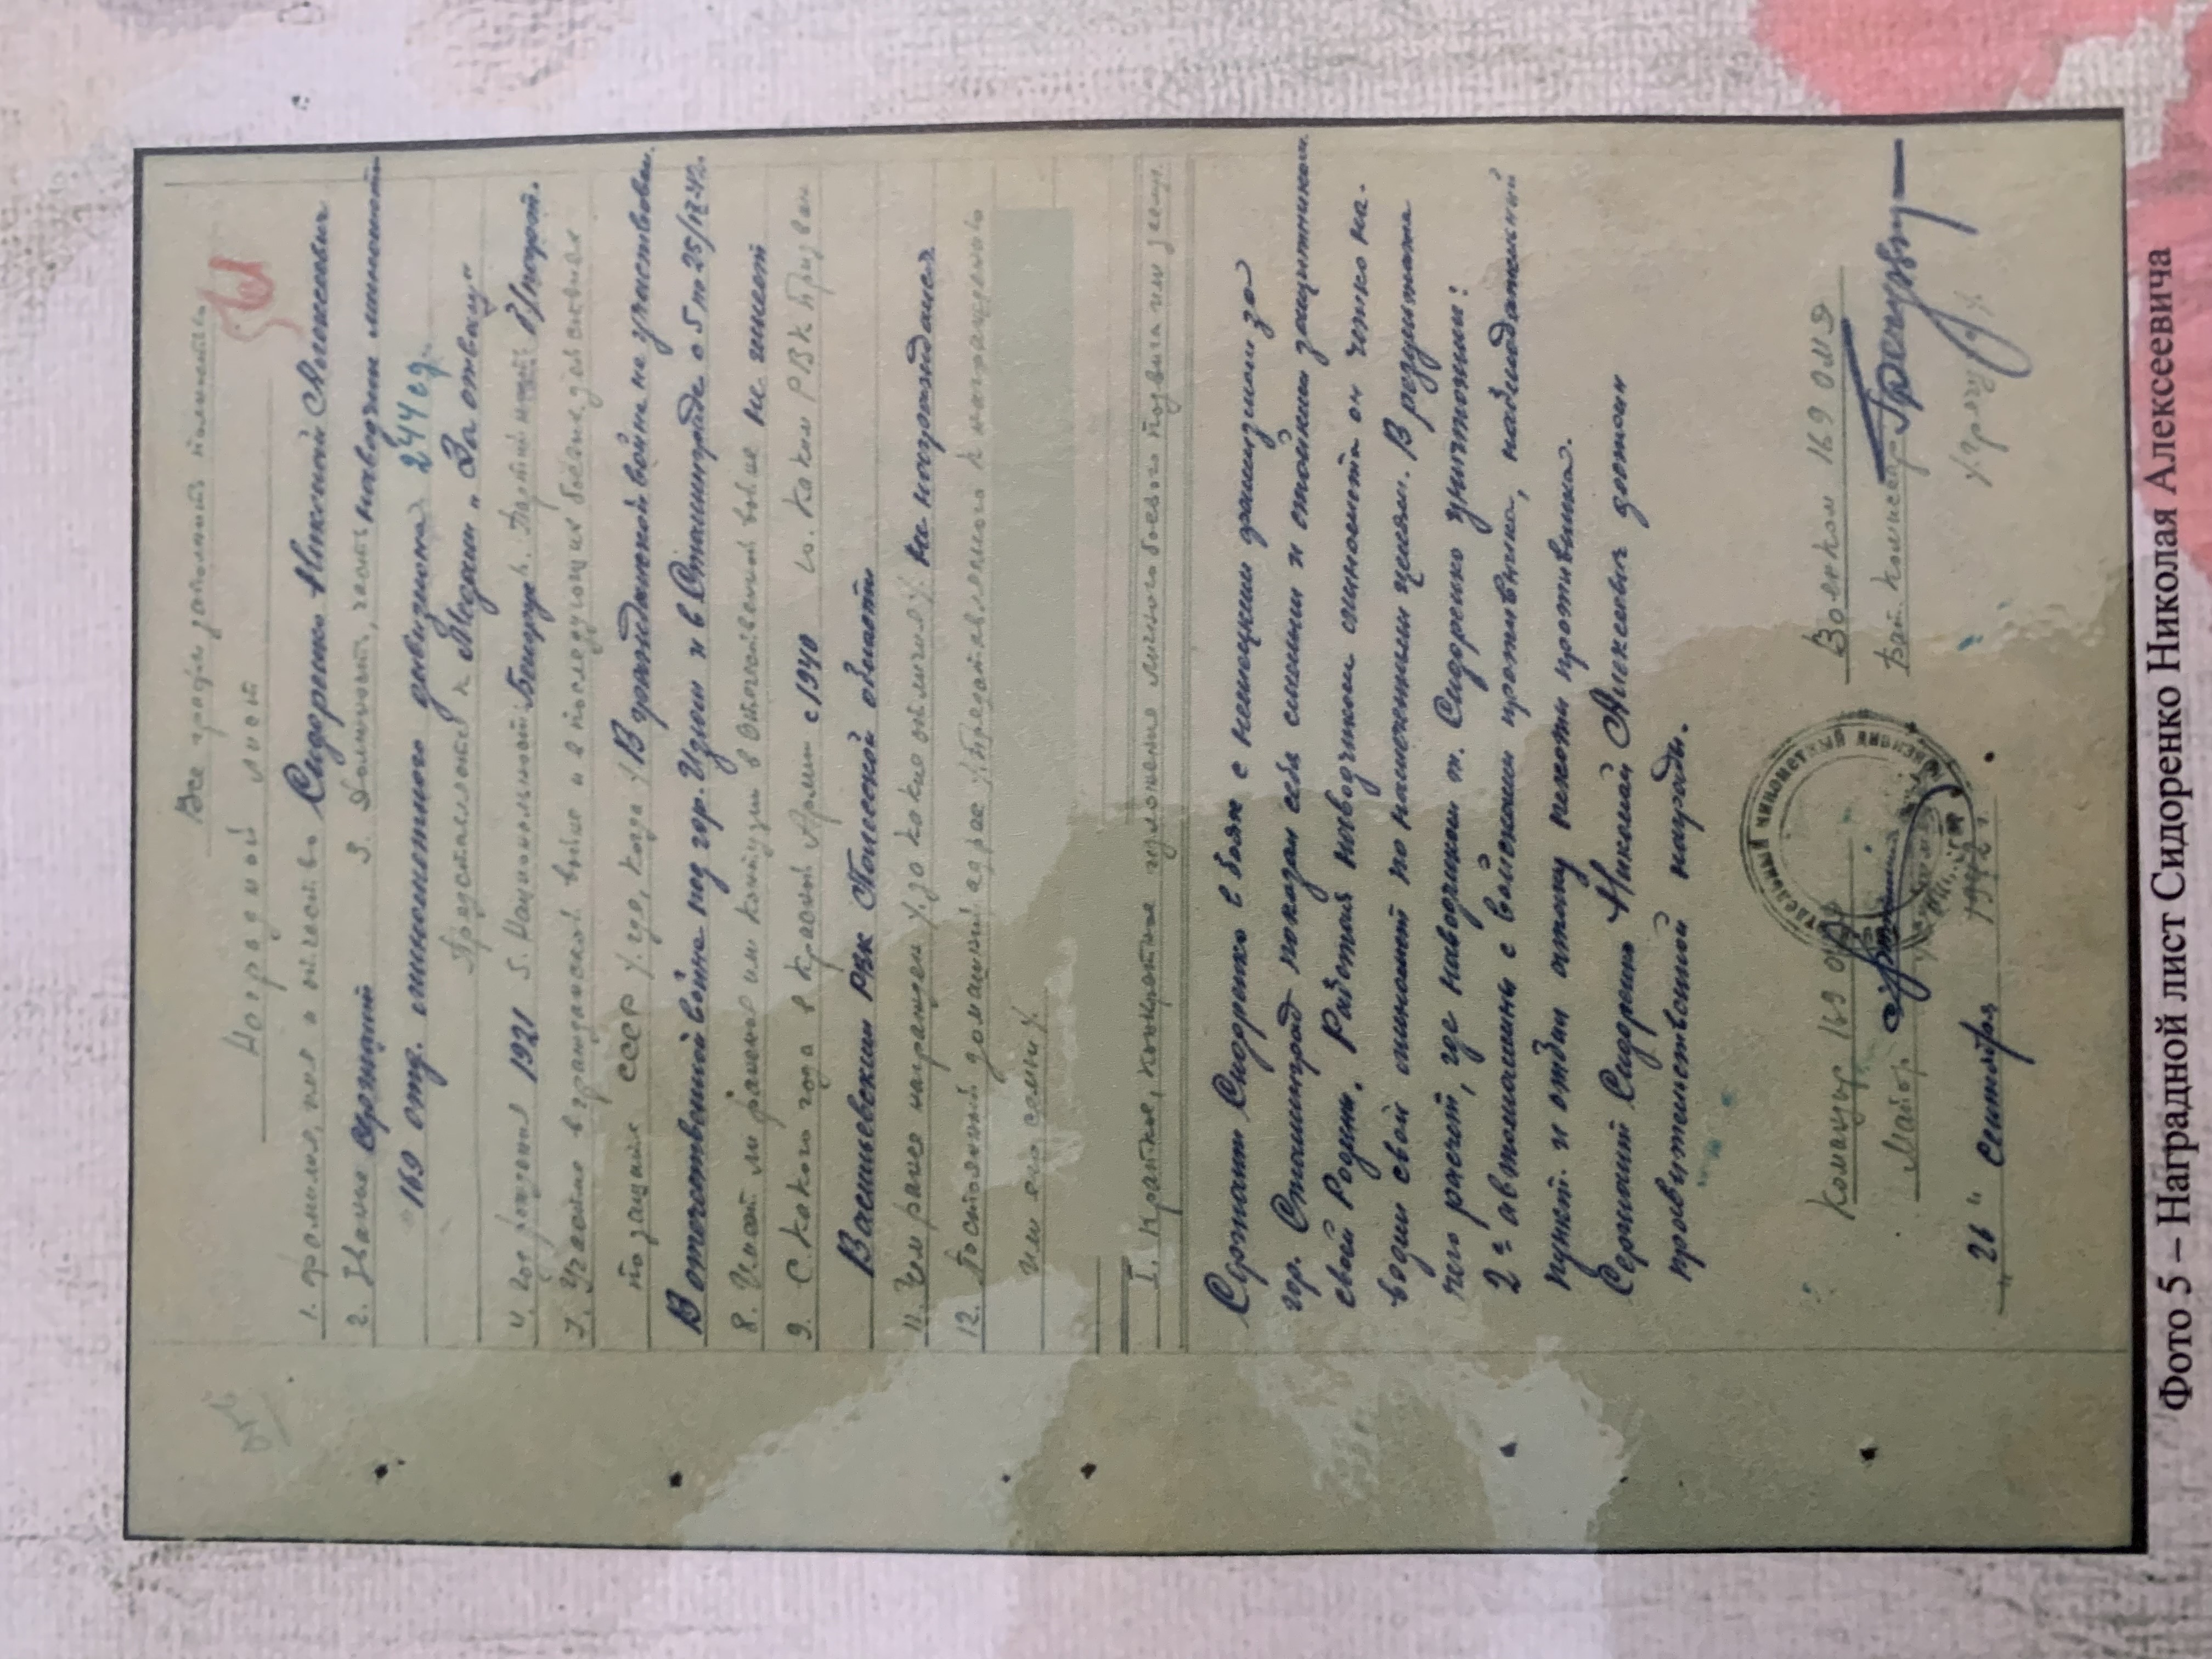 Все графы заполнять полностью
Наградной лист
1. Фамилия, имя и отчество Сидоренко Николай Алексеевич
2. Звание Сержант 3. Должность, часть наводчик миномета
169 отд. минометного дивизиона 244 сд.
Представляется к Медали „За отвагу"
4. Год рождения 1921 5. Национальность Белорус 6. Партийность б/парт.
7. Участие в гражданской войне и в последующие боевые действия
по защите СССР /где, когда/ В гражданской войне не участвовал.
В отечественной войне под гор. и в Сталинграде с 5 по 25/IX-42.
8. Имеет ли ранения или контузии в Отечественной войне не имеет
9. С какого года в Красной Армии с 1940 10. Каким РВК призван
Васильевским РВК Полесской области
11. Чем ранее награжден /за какие отличия/ не награждался
12. Постоянный домашний адрес /представляемого к награждению
или его семьи/
I. Краткое, конкретное изложение личного боевого подвига или заслуг.
Сержант Сидоренко в боях с немецкими фашизмом за
гор. Сталинград показал себя смелым и стойким защитником
своей Родины. Работая наводчиком миномета он четко на-
водил свой миномет по намеченным целям. В результате
чего расчет, где наводчиком т. Сидоренко уничтожил:
2 автомашины с войсками противника, наблюдательный
пункт и отбил атаку пехоты противника.
Сержант Сидоренко Николай Алексеевич достоин
правительственной награды.
Командир 169 ОМД Военком 169 ОМД
Майор Бат. комиссар
„26" сентября 1942 г.
Фото 5 – Наградной лист Сидоренко Николая Алексеевича